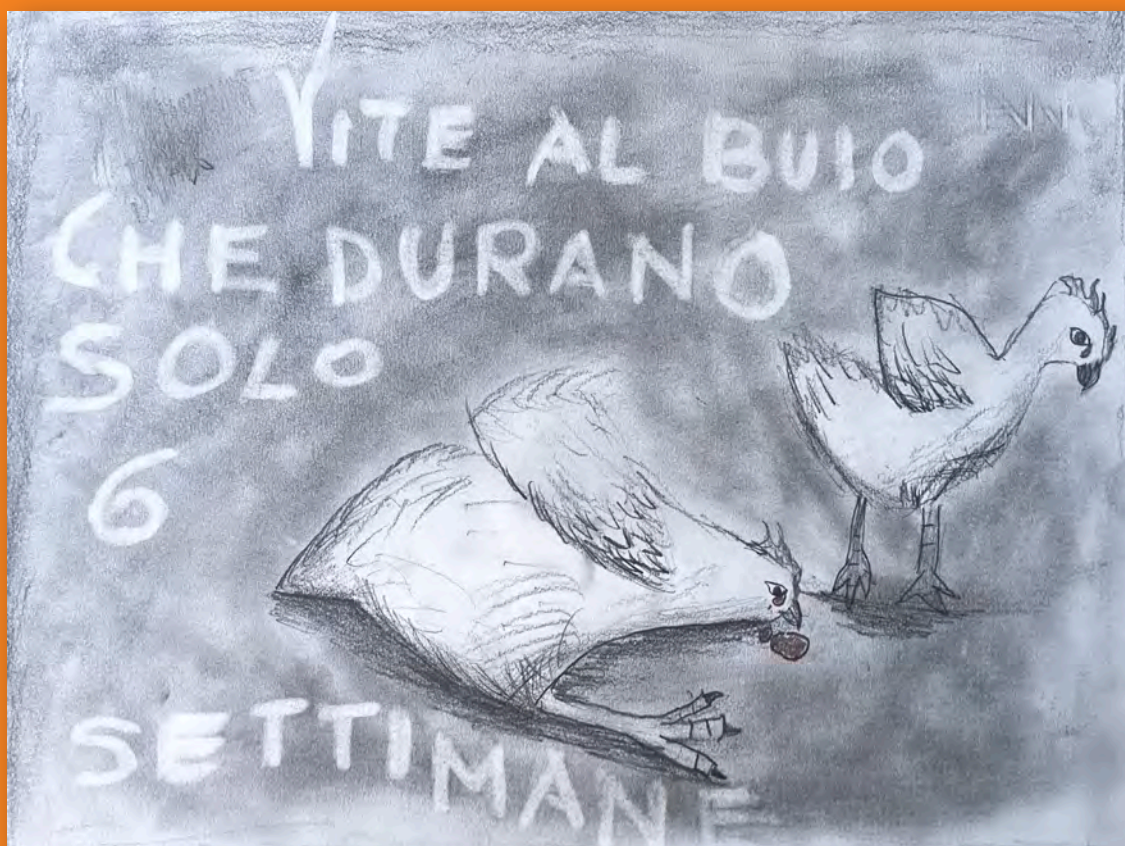 VITE AL BUIO
CHE DURANO
SOLO
6
SETTIMANE